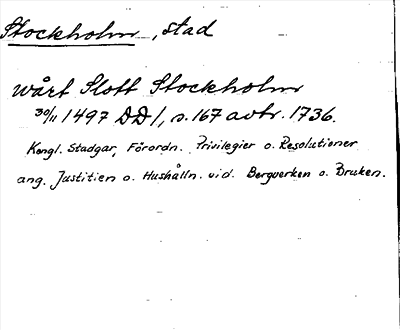 Stockholm, stad
wårt Slott Stockholm
30/11 1497 DD1, s. 167 avtr. 1736.
Kongl. Stadgar, Förordn. Privilegier o. Resolutioner
ang. Justitien o. Hushålln. vid. Bergverken o. Bruken.